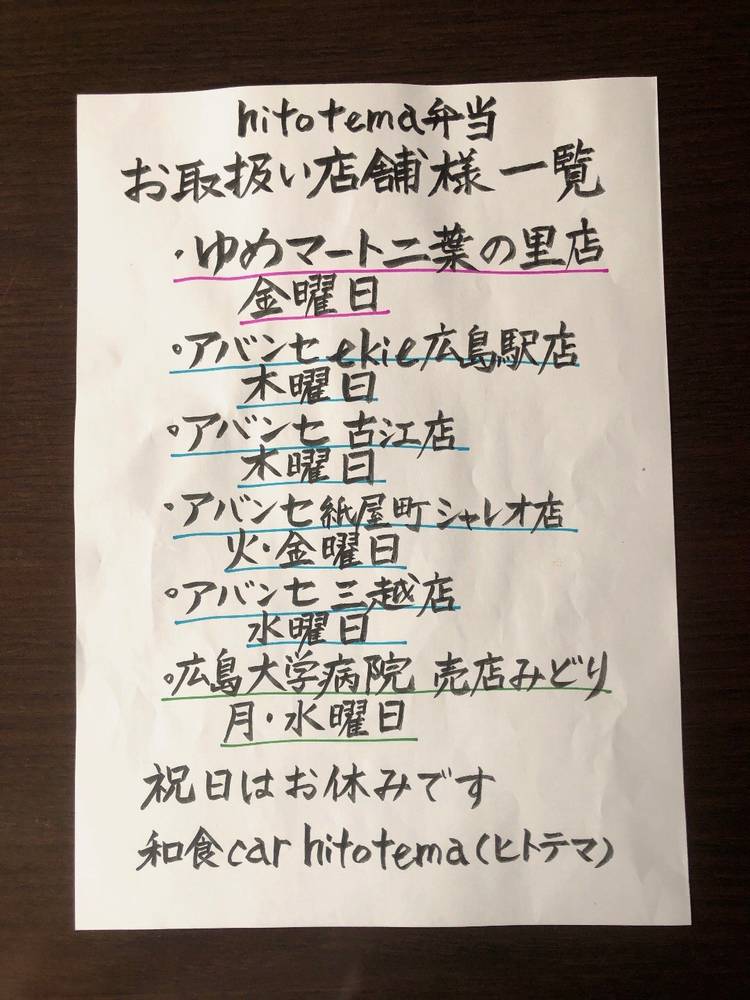 hitotema弁当
お取扱い店舗様一覧
・ゆめマート二葉の里店
金曜日
・アバンセekie広島駅店
木曜日
・アバンセ 古江店
木曜日
・アバンセ紙屋町シャレオ店
火・金曜日
・アバンセ三越店
水曜日
・広島大学病院 売店みどり
月・水曜日
祝日はお休みです
和食car hitotema(ヒトテマ)